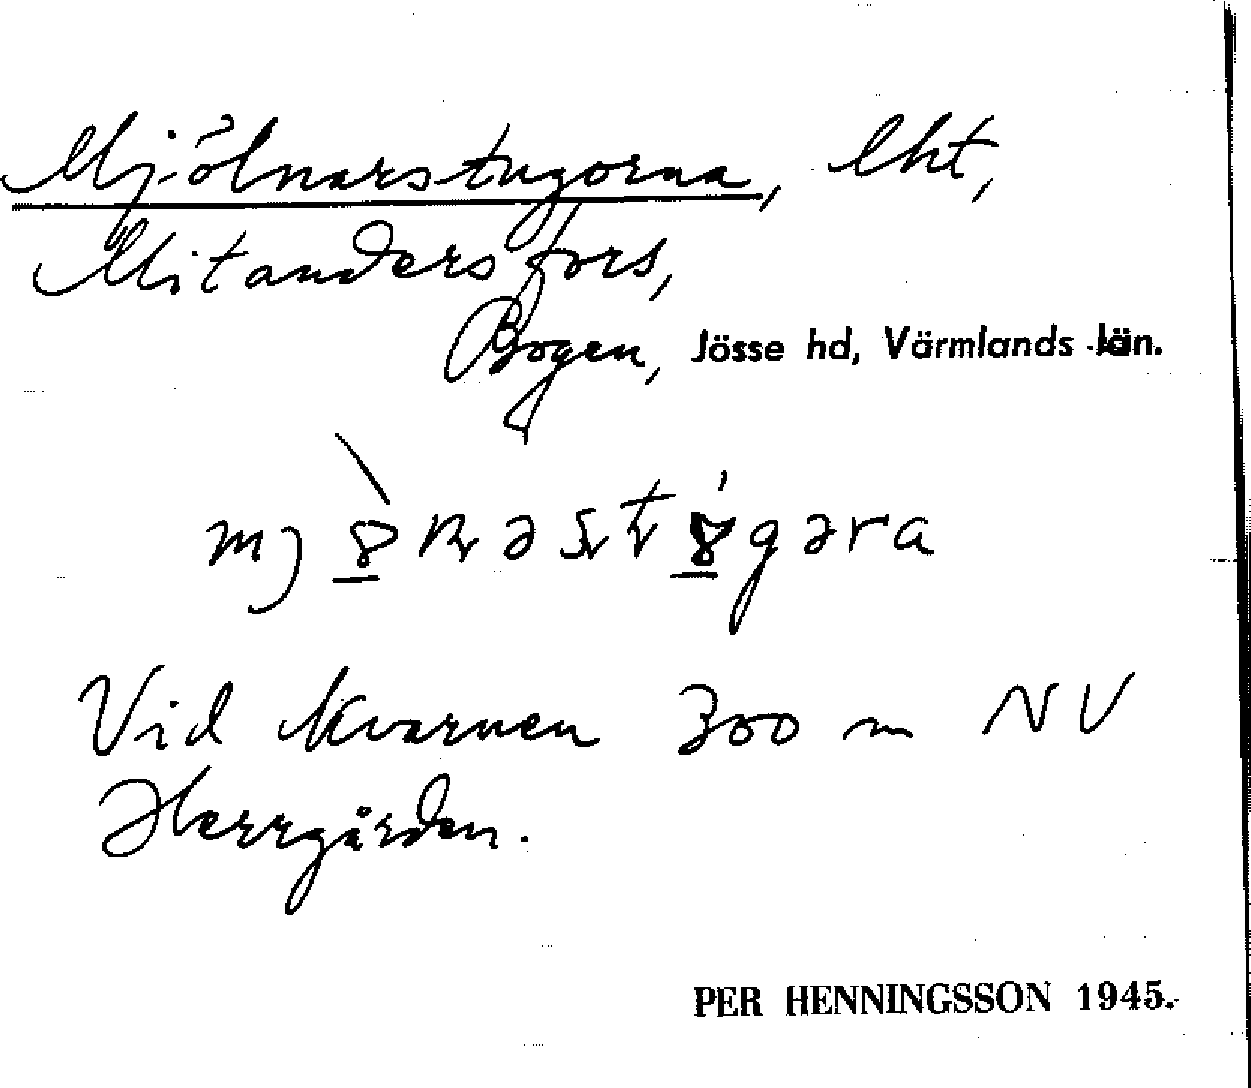 Mjölnarstugorna, lht,
Mitandersfors,
Bogen, Jösse hd, Värmlands län.
Vid Kvarnen 300 m NV
Herrgården.
PER HENNINGSSON 1945.